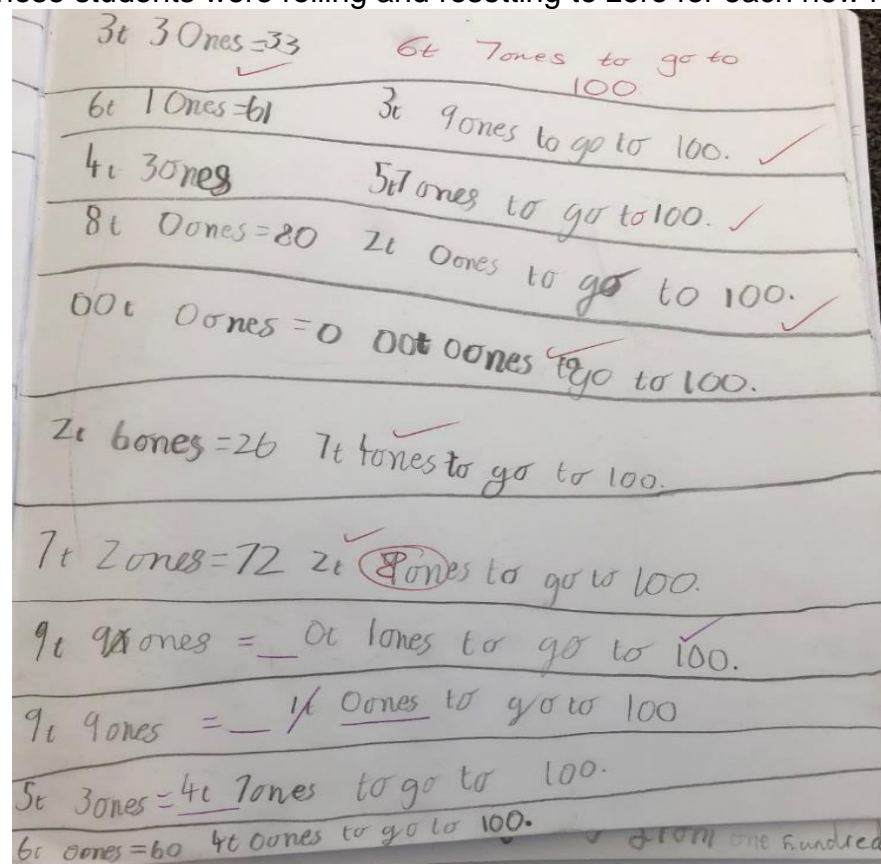 3t 3 Ones =33 6t 7ones to go to 100
6t 1 Ones =61 3t 9ones to go to 100.
4t 3ones 5t7 ones to go to 100.
8t 0ones =80 2t 0ones to go to 100.
00t 0ones =0 00t 0ones to go to 100.
2t 6ones =26 7t 4ones to go to 100.
7t 2ones =72 2t 8ones to go to 100.
9t 9 ones =_ 0t 1ones to go to 100.
9t 9ones =_ 1t 0ones to go to 100
5t 3ones =4t 7ones to go to 100.
6t 0ones =60 4t 0ones to go to 100.
from one hundred